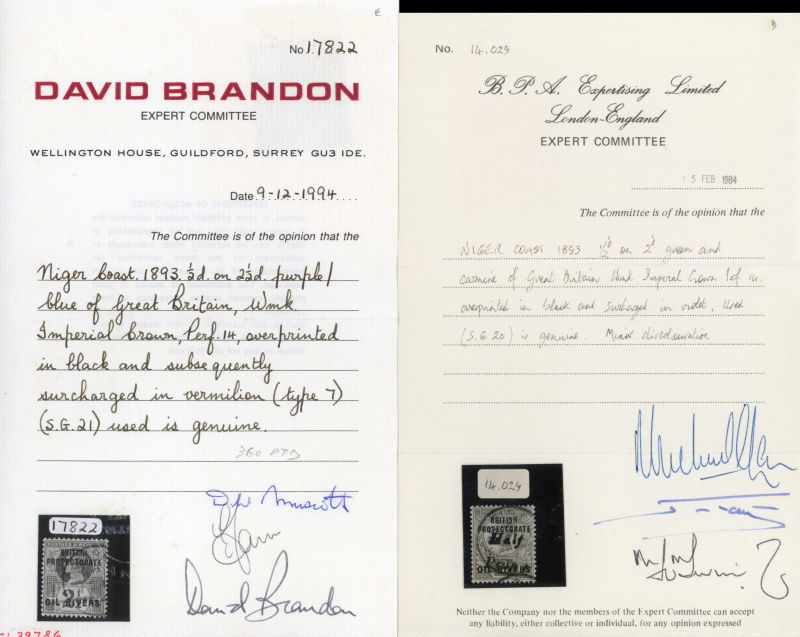 E
No 17822
DAVID BRANDON
EXPERT COMMITTEE
WELLINGTON HOUSE, GUILDFORD, SURREY GU3 IDE.
Date 9-12-1994
The Committee is of the opinion that the
Niger Coast. 1893. ½d. on 2½d. purple/
blue of Great Britain, Wmk.
Imperial Crown, Perf. 14, overprinted
in black and subsequently
surcharged in vermilion (type 7)
(S.G. 21) used is genuine.
360 PTS
David Brandon
17822
BRITISH
PROTECTORATE
OIL RIVERS
39786
D
No. 14,029
B. P. A. Expertising Limited
London-England
EXPERT COMMITTEE
15 FEB 1984
The Committee is of the opinion that the
NIGER COAST 1893 ½d on 2d green and
carmine of Great Britain Wmk Imperial Crown Perf 14.
overprinted in black and surcharged in violet. Used
(S.G. 20) is genuine. Minor discolouration
14.029
BRITISH
PROTECTORATE
Half
OIL RIVERS
Neither the Company nor the members of the Expert Committee can accept
any liability, either collective or individual, for any opinion expressed